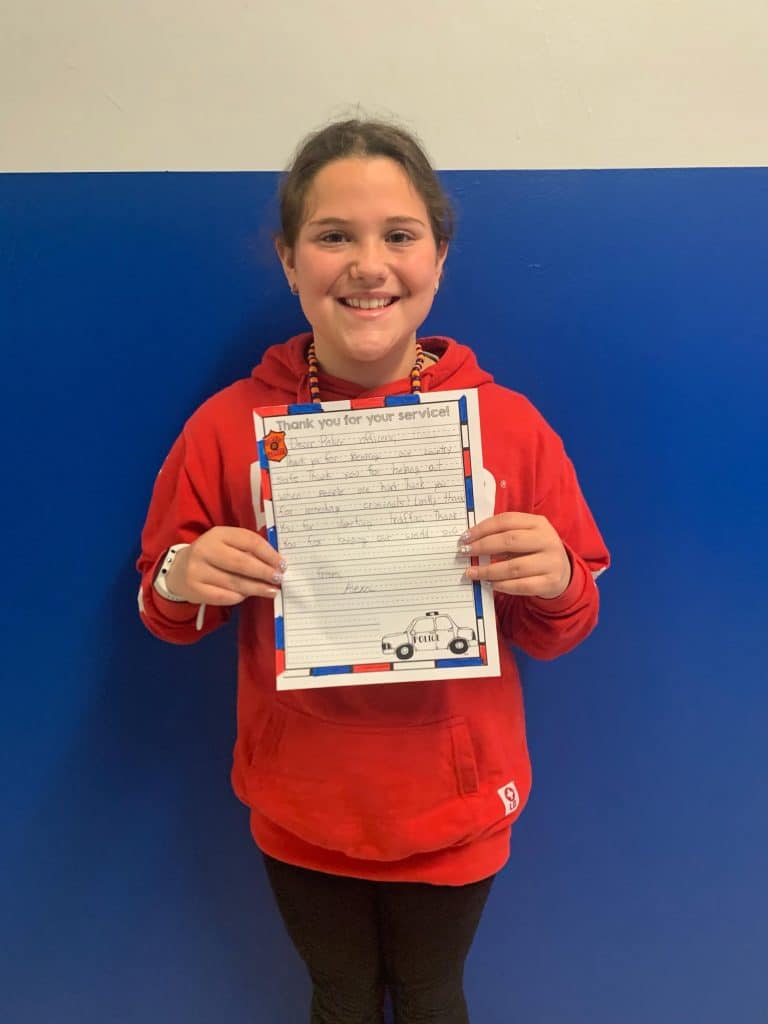 Thank you for your service!
Dear Police officers,
thank you for keeping our country
safe. Thank you for helping out
when people are hurt. Thank you
for arresting criminals! Lastly thank
you for directing traffic. Thank
you for keeping our world safe.
From,
POLICE